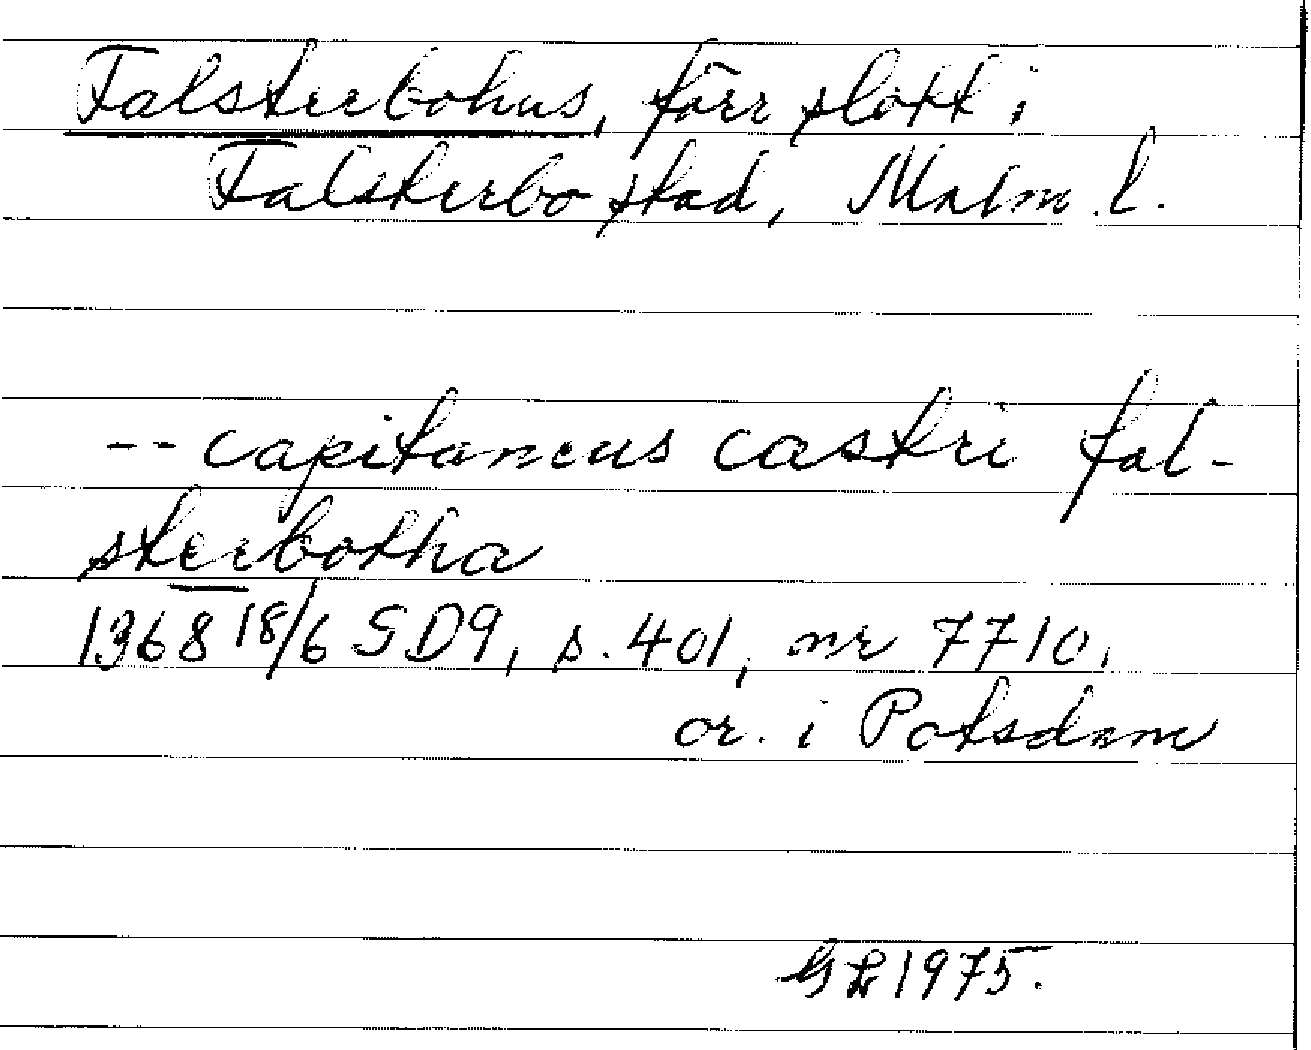 Falsterbohus, förr slott i
Falsterbo stad, Malm. l.
-- capitaneus castri fal-
sterbotha
1368 18/6 SD9, s. 401, nr 7710,
or. i Potsdam
1975.